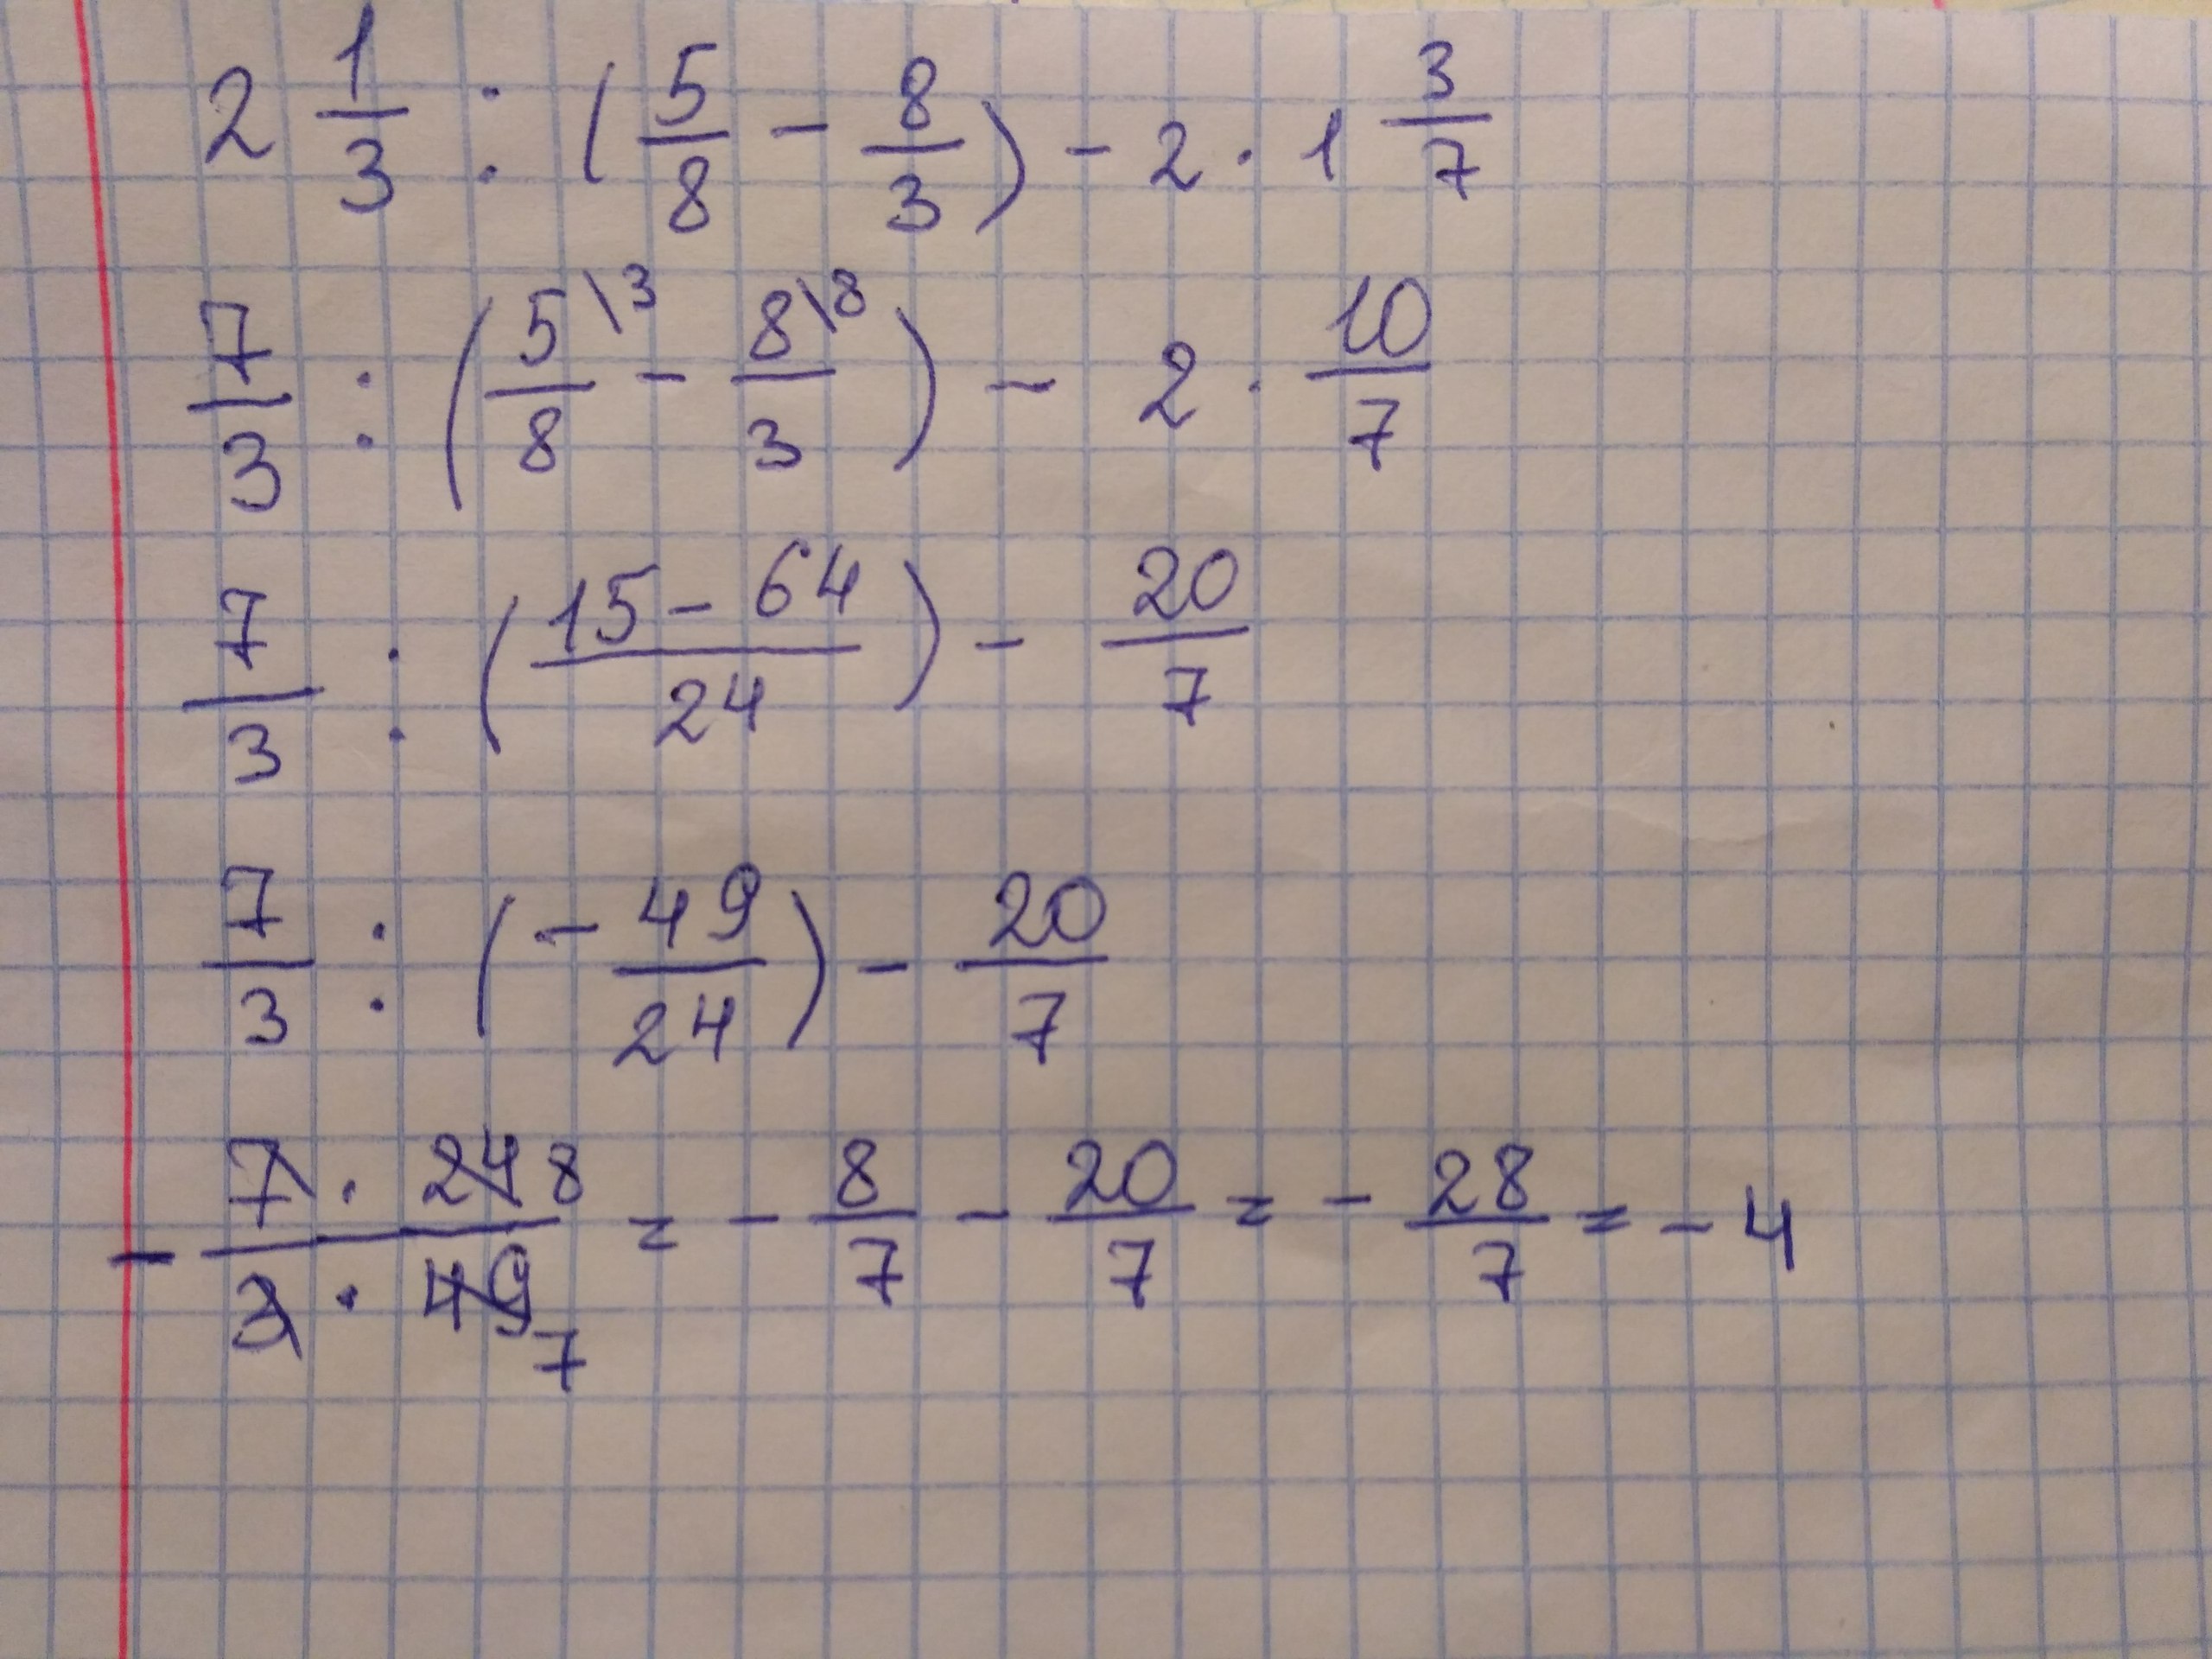 2 1/3 : (5/8 - 8/3) - 2 · 1 3/7
7/3 : (5\3/8 - 8\8/3) - 2 · 10/7
7/3 : (15 - 64/24) - 20/7
7/3 : (- 49/24) - 20/7
- 7 · 24 8/3 · 49 7 = - 8/7 - 20/7 = - 28/7 = - 4